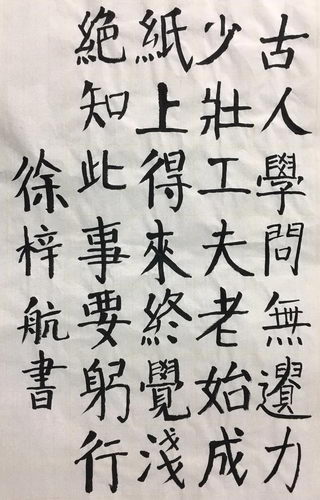 古人學問無遺力
少壯工夫老始成
紙上得來終覺淺
絕知此事要躬行
徐梓航書